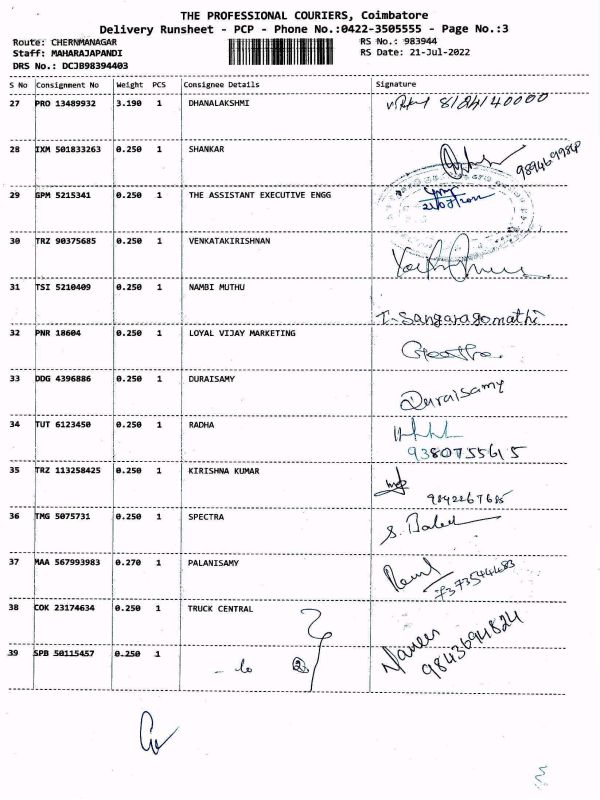 THE PROFESSIONAL COURIERS, Coimbatore
Delivery Runsheet - PCP - Phone No.:0422-3505555 - Page No.:3
Route: CHERNMANAGAR RS No.: 983944
Staff: MAHARAJAPANDI RS Date: 21-Jul-2022
DRS No.: DCJB98394403
S No Consignment No Weight PCS Consignee Details Signature
27 PRO 13489932 3.190 1 DHANALAKSHMI
28 IXM 501833263 0.250 1 SHANKAR
29 GPM 5215341 0.250 1 THE ASSISTANT EXECUTIVE ENGG
30 TRZ 90375685 0.250 1 VENKATAKIRISHNAN
31 TSI 5210409 0.250 1 NAMBI MUTHU
T. Sangaragomathi
32 PNR 18604 0.250 1 LOYAL VIJAY MARKETING
Geetha
33 DDG 4396886 0.250 1 DURAISAMY
Duraisamy
34 TUT 6123450 0.250 1 RADHA
9380755615
35 TRZ 113258425 0.250 1 KIRISHNA KUMAR
9842267685
36 TMG 5075731 0.250 1 SPECTRA
37 MAA 567993983 0.270 1 PALANISAMY
7373544483
38 COK 23174634 0.250 1 TRUCK CENTRAL
Naveen
9843694824
39 SPB 50115457 0.250 1